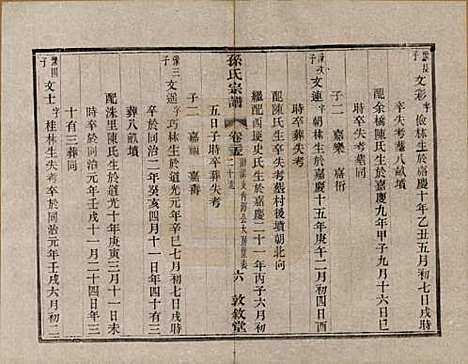 文彩字俭林生於嘉慶十年乙丑五月初七日戌時
卒失考葬八畝墳
配余橋陳氏生於嘉慶九年甲子九月十六日巳
時卒失考葬同
子二 嘉樂 嘉衍
文連字朝林生於嘉慶十五年庚午二月初四日戌時
配陳氏生卒失考葬村後墳朝北向
繼配西埂史氏生於嘉慶二十一年丙子六月初
五日子時卒葬失考
子二 嘉福 嘉壽
孫氏宗譜 卷二十五 六 敦敘堂
文遥字巧林生於道光元年辛巳七月初七日戌時
卒於同治二年癸亥四月十一日年四十有三
葬八畝墳
配洙里陳氏生於道光十年庚寅三月十一日未
時卒於同治元年壬戌十一月二十四日年三
十有三葬同
文士字桂林生失考卒於同治元年壬戌六月初二